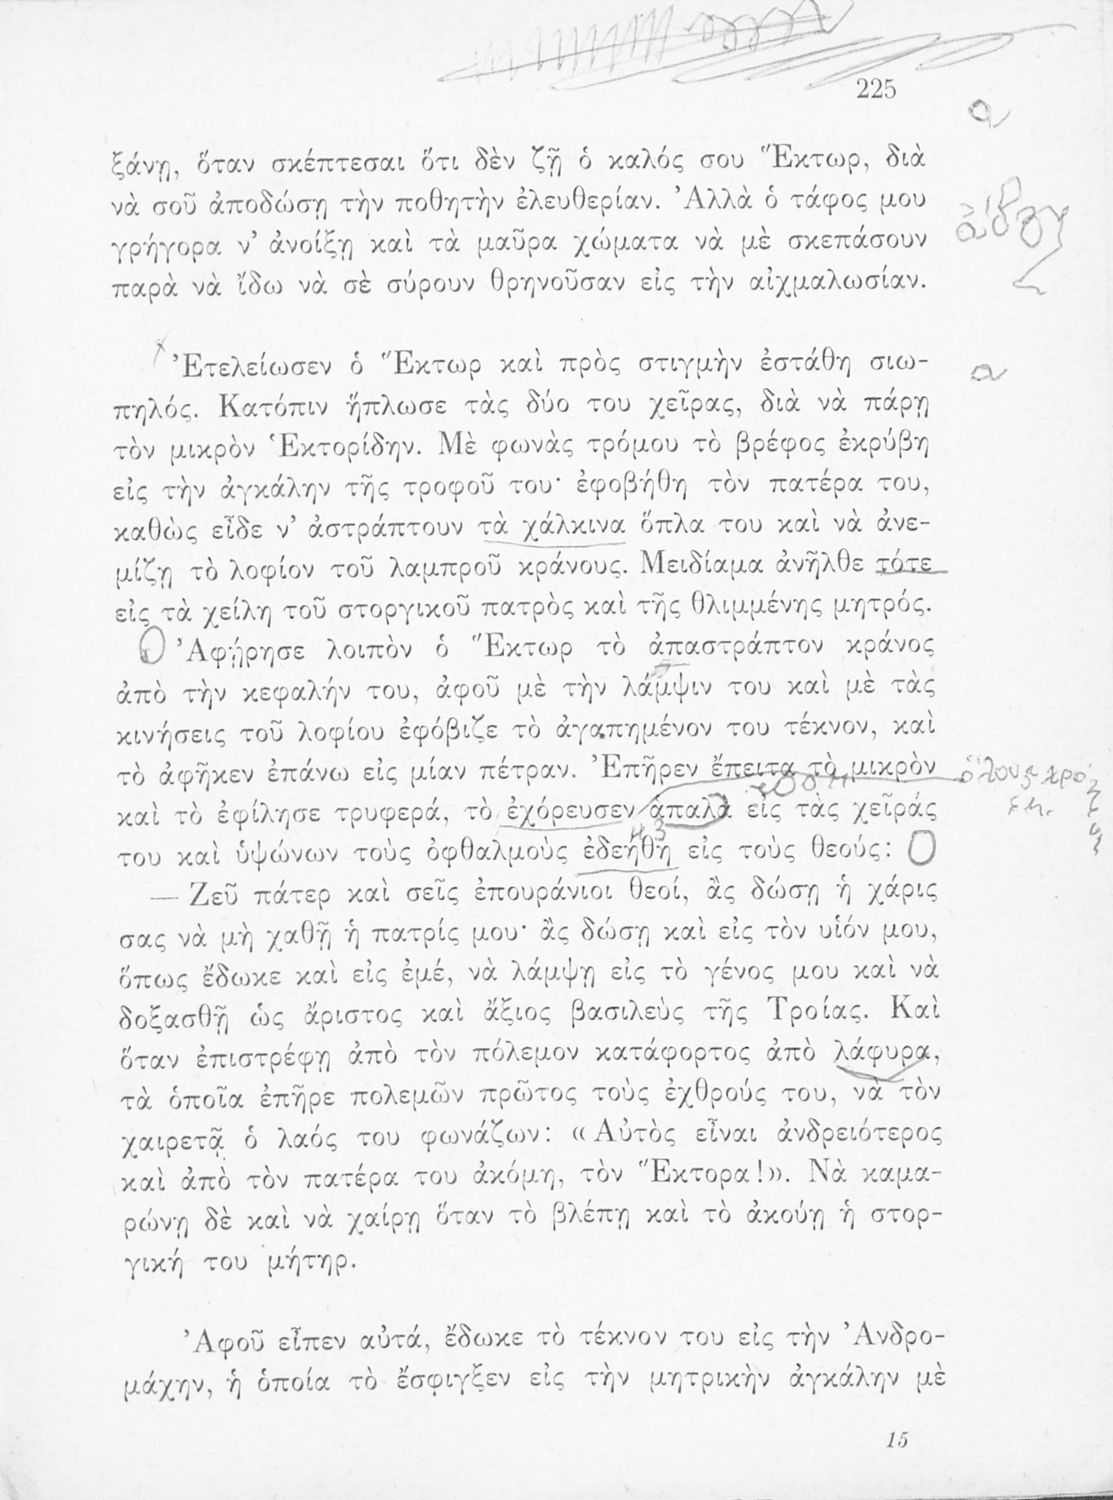 225
ξάνῃ, ὅταν σκέπτεσαι ὅτι δὲν ζῇ ὁ καλός σου Ἕκτωρ, διὰ
νὰ σοῦ ἀποδώσῃ τὴν ποθητὴν ἐλευθερίαν. Ἀλλὰ ὁ τάφος μου
γρήγορα ν’ ἀνοίξῃ καὶ τὰ μαῦρα χώματα νὰ μὲ σκεπάσουν
παρὰ νὰ ἴδω νὰ σὲ σύρουν θρηνοῦσαν εἰς τὴν αἰχμαλωσίαν.
Ἐτελείωσεν ὁ Ἕκτωρ καὶ πρὸς στιγμὴν ἐστάθη σιω-
πηλός. Κατόπιν ἥπλωσε τὰς δύο του χεῖρας, διὰ νὰ πάρῃ
τὸν μικρὸν Ἑκτορίδην. Μὲ φωνὰς τρόμου τὸ βρέφος ἐκρύβη
εἰς τὴν ἀγκάλην τῆς τροφοῦ του· ἐφοβήθη τὸν πατέρα του,
καθὼς εἶδε ν’ ἀστράπτουν τὰ χάλκινα ὅπλα του καὶ νὰ ἀνε-
μίζῃ τὸ λοφίον τοῦ λαμπροῦ κράνους. Μειδίαμα ἀνῆλθε τότε
εἰς τὰ χείλη τοῦ στοργικοῦ πατρὸς καὶ τῆς θλιμμένης μητρός.
Ἀφῄρησε λοιπὸν ὁ Ἕκτωρ τὸ ἀπαστράπτον κράνος
ἀπὸ τὴν κεφαλήν του, ἀφοῦ μὲ τὴν λάμψιν του καὶ μὲ τὰς
κινήσεις τοῦ λοφίου ἐφόβιζε τὸ ἀγαπημένον του τέκνον, καὶ
τὸ ἀφῆκεν ἐπάνω εἰς μίαν πέτραν. Ἐπῆρεν ἔπειτα τὸ μικρὸν
καὶ τὸ ἐφίλησε τρυφερά, τὸ ἐχόρευσεν ἁπαλὰ εἰς τὰς χεῖράς
του καὶ ὑψώνων τοὺς ὀφθαλμοὺς ἐδεήθη εἰς τοὺς θεούς:
— Ζεῦ πάτερ καὶ σεῖς ἐπουράνιοι θεοί, ἂς δώσῃ ἡ χάρις
σας νὰ μὴ χαθῇ ἡ πατρίς μου· ἂς δώσῃ καὶ εἰς τὸν υἱόν μου,
ὅπως ἔδωκε καὶ εἰς ἐμέ, νὰ λάμψῃ εἰς τὸ γένος μου καὶ νὰ
δοξασθῇ ὡς ἄριστος καὶ ἄξιος βασιλεὺς τῆς Τροίας. Καὶ
ὅταν ἐπιστρέφῃ ἀπὸ τὸν πόλεμον κατάφορτος ἀπὸ λάφυρα,
τὰ ὁποῖα ἐπῆρε πολεμῶν πρῶτος τοὺς ἐχθρούς του, νὰ τὸν
χαιρετᾷ ὁ λαός του φωνάζων: «Αὐτὸς εἶναι ἀνδρειότερος
καὶ ἀπὸ τὸν πατέρα του ἀκόμη, τὸν Ἕκτορα!». Νὰ καμα-
ρώνῃ δὲ καὶ νὰ χαίρῃ ὅταν τὸ βλέπῃ καὶ τὸ ἀκούῃ ἡ στορ-
γική του μήτηρ.
Ἀφοῦ εἶπεν αὐτά, ἔδωκε τὸ τέκνον του εἰς τὴν Ἀνδρο-
μάχην, ἡ ὁποία τὸ ἔσφιγξεν εἰς τὴν μητρικὴν ἀγκάλην μὲ
15